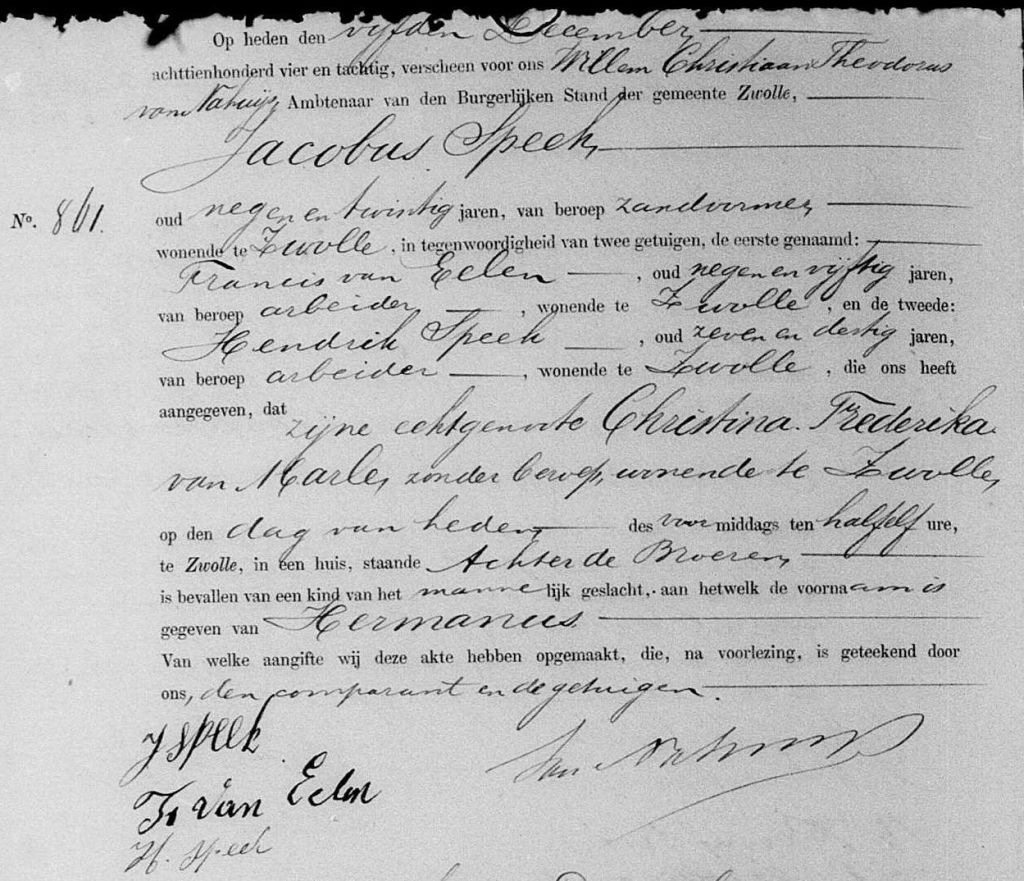 Op heden den vijfden December,
achttienhonderd vier en tachtig, verscheen voor ons Willem Christiaan Theodorus
van Nahuijs Ambtenaar van den Burgerlijken Stand der gemeente Zwolle,
Jacobus Speek,
No. 861.
oud negen en twintig jaren, van beroep zandvormer,
wonende te Zwolle, in tegenwoordigheid van twee getuigen, de eerste genaamd:
Francis van Eelen, oud negen en vijftig jaren,
van beroep arbeider, wonende te Zwolle, en de tweede:
Hendrik Speek, oud zeven en dertig jaren,
van beroep arbeider, wonende te Zwolle, die ons heeft
aangegeven, dat zijne echtgenoote Christina Frederika
van Marle, zonder beroep, wonende te Zwolle,
op den dag van heden, des voormiddags ten half elf ure,
te Zwolle, in een huis, staande Achter de Broeren,
is bevallen van een kind van het mannelijk geslacht, aan hetwelk de voornaam is
gegeven van Hermanus.
Van welke aangifte wij deze akte hebben opgemaakt, die, na voorlezing, is geteekend door
ons, den comparant en de getuigen.
J Speek
Van Nahuijs
Fr Van Eelen
H. Speek